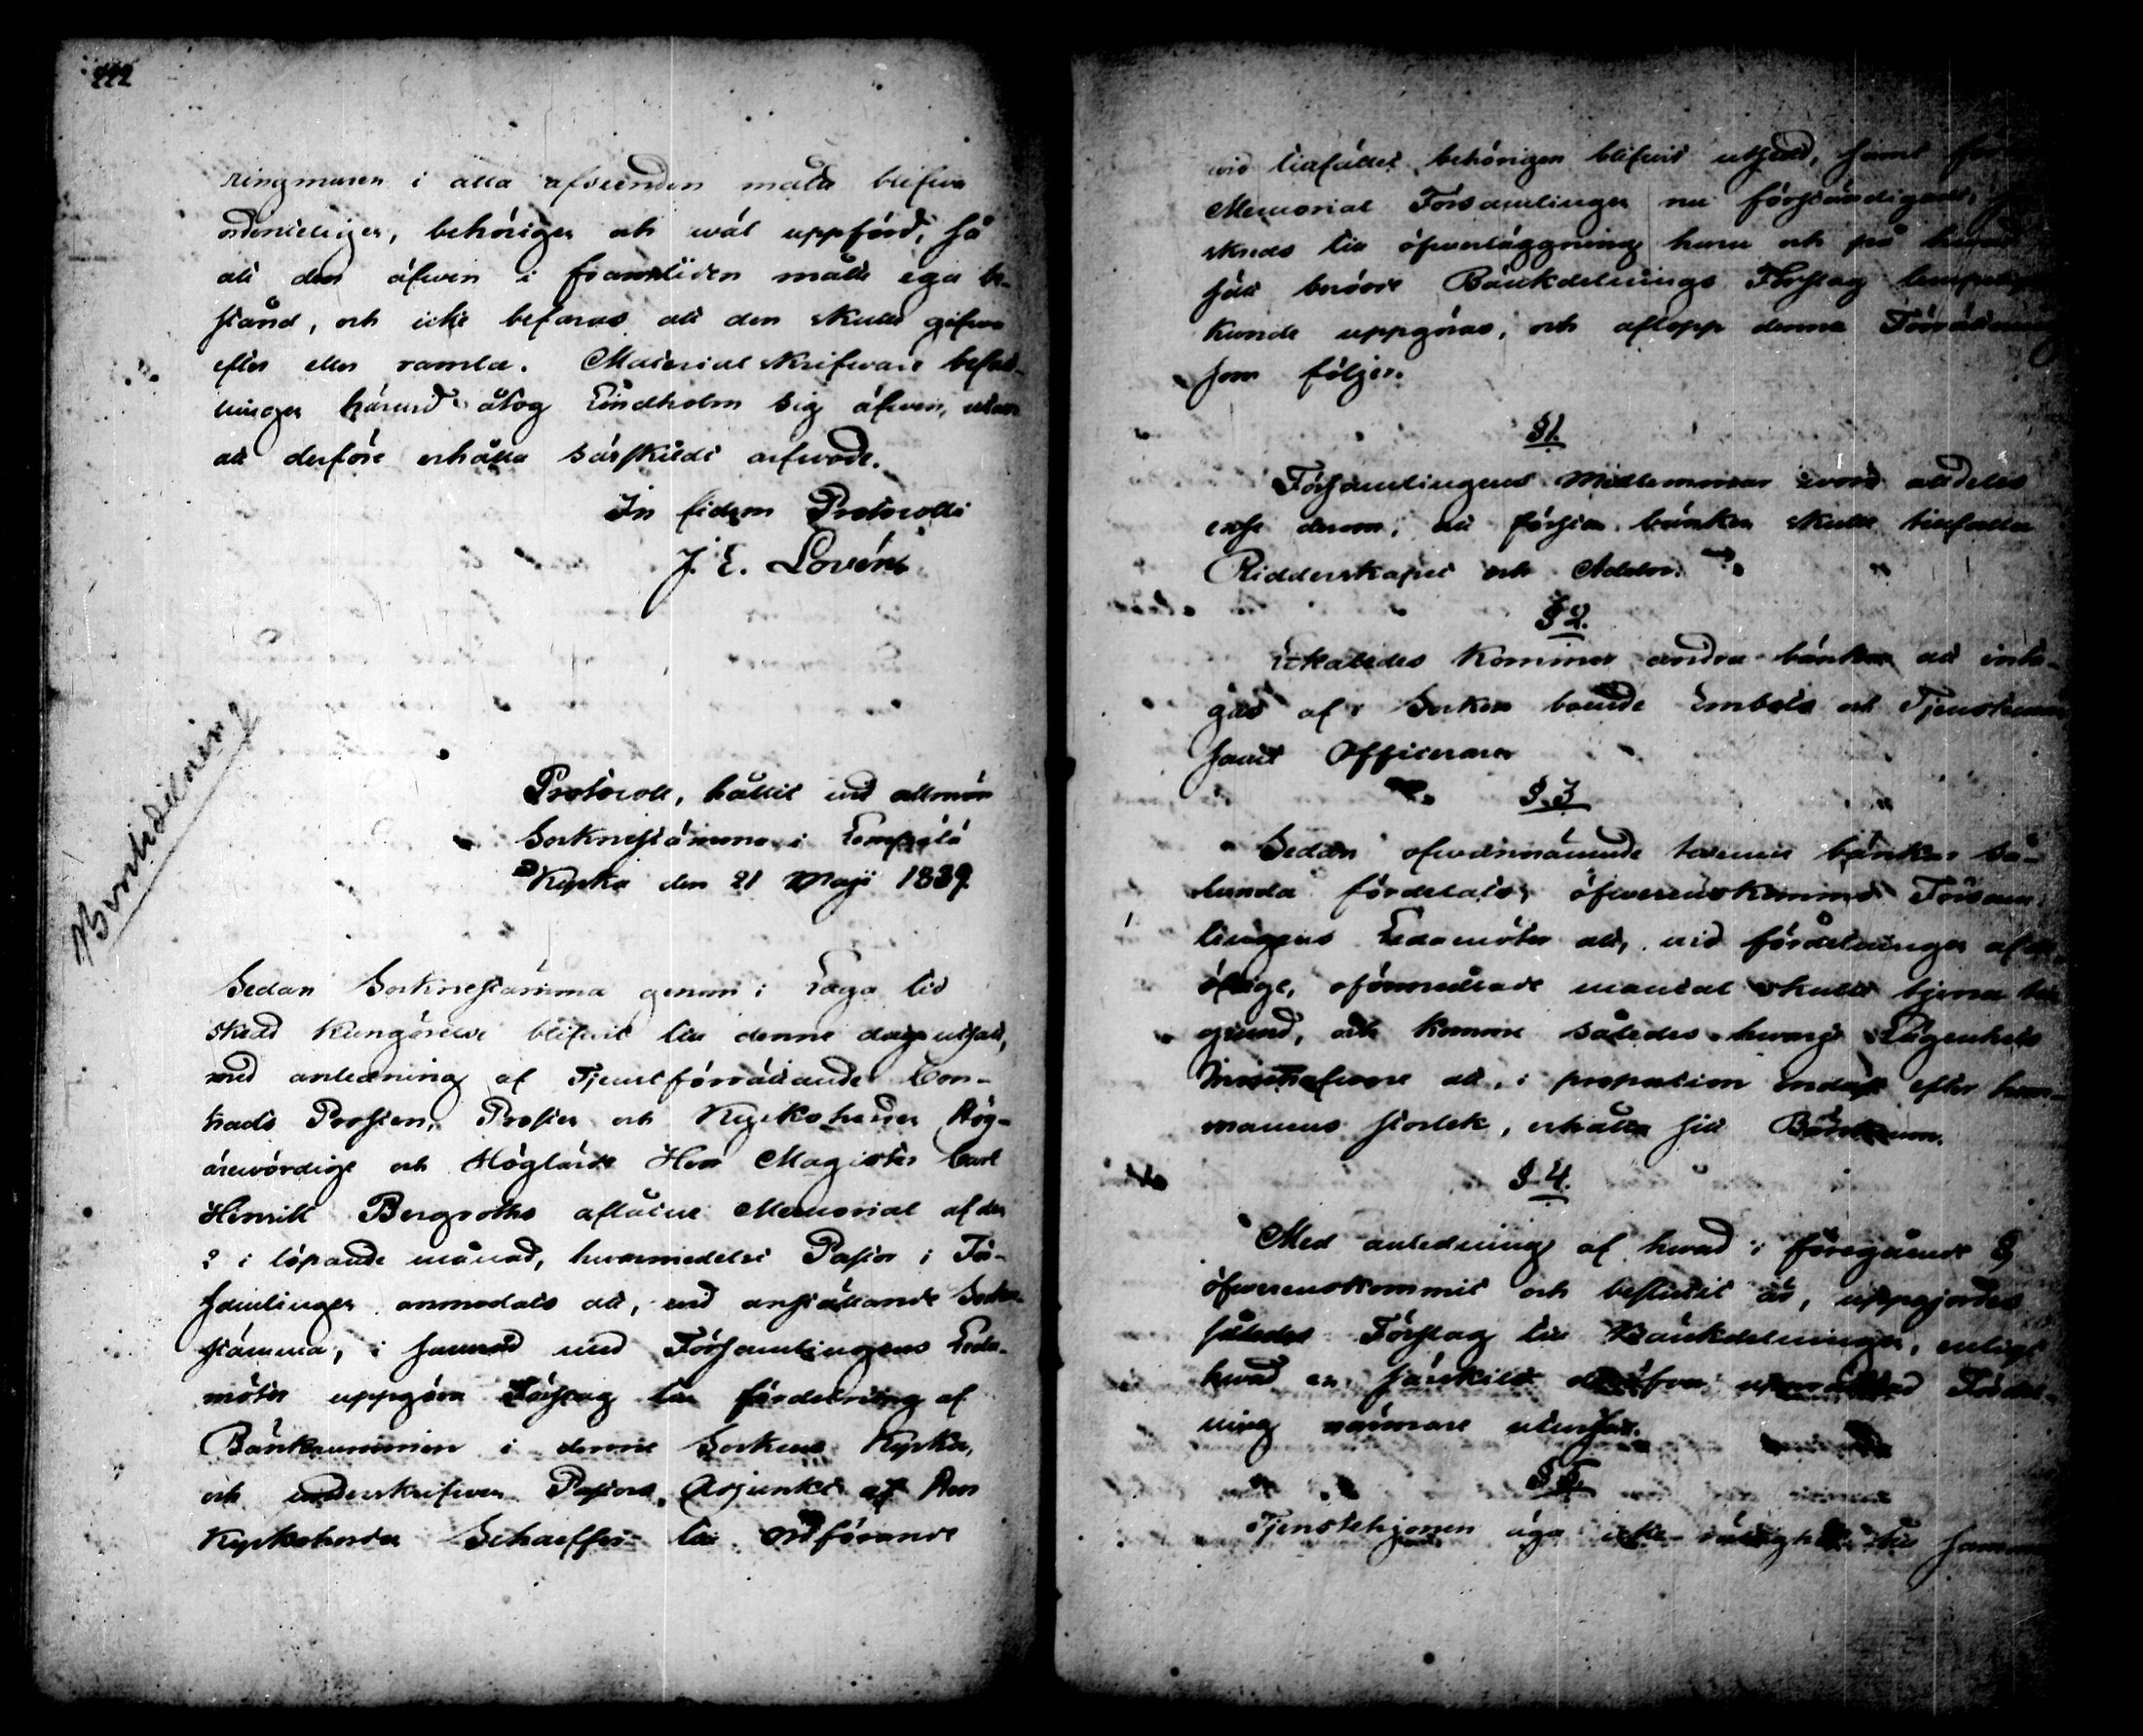 442
ringmuren i alla afseenden måtte blifwa
ordenteligen, behörigen och wäl uppförd, så
att den äfwen i framtiden måtte ega be-
stånd, och icke befaras att den skulle gifwa
efter eller ramla. Material skrifware befatt-
ningen härwid åtog Lindholm sig äfwen, utan
att derföre erhålla särskildt arfwode.
In fidem Protocolli
J. E. Lovén
Bänkdelning
Protocoll, hållit wid allmän
Sockenstämma i Lempälä
Kyrka den 21 Maji 1839.
Sedan Socknestämma genom i Laga tid
skedd Kungörelse blifwit till denne dag utsatt,
med anledning af Tjenstförrättande Con-
trads Prosten, Prosten och Kyrkoherden Hög-
ärewördige och Höglärde Herr Magister Carl
Henrik Bergroths aflåtne Memorial af den
2 i löpande månad, hwarmedelst Pastor i För-
samlingen anmodats att, wid anställande Socken-
stämma, i samråd med Församlingens Leda-
möter uppgöra Förslag till fördelning af
Bänkrummen i denne Sockens Kyrka,
och underskrifwen Pastors Adjunkt af Herr
Kyrkoherden Schaeffer till Ordförande
wid tillfället behörigen blifwit utsedd, samt
Memorial Församlingen nu förständigadt,
skreds till öfwerläggning huru och på hwad
sätt berörde Bänkdelnings Förslag lämpeligen
kunde uppgöras, och aflopp denna Förrättning
som följer.
§1.
Församlingens Medlemmar woro alldeles
ense derom, att första bänken skulle tillfalla
Ridderskapet och Adeln.
§2.
Likaledes kommer andra bänken att inta-
gas af i Socken boende Embets och Tjenstemän
samt Officerare
§.3
Sedan ofwannämnde twenne bänkar så-
lunda fördelats, öfwerenskommo Försam-
lingens Ledamöter att, wid fördelningen af de
öfrige, oförmedlade mantal skulle tjena till
grund, och komme således hwarje Lägenhets
Innehafware att, i proportion endast efter hem-
manens storlek, erhålla sitt Bänkrum.
§ 4.
Med anledning af hwad i föregående §
öfwerenskommit och beslutit är, uppgjordes
således Förslag till Bänkdelningen, enligt
hwad en särskild deröfwer upprättad Fördel-
ning närmare utwisar.
§ 5.
Tjenstehjonen äga icke rättighet till